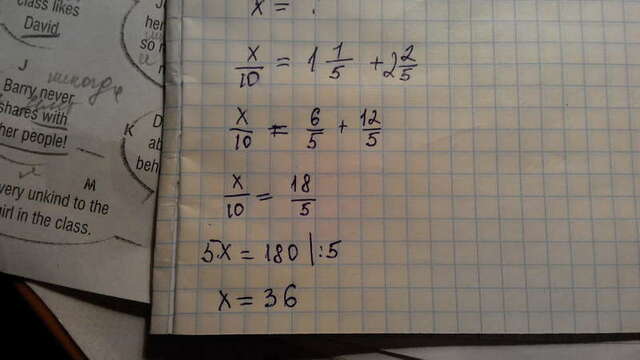 class likes
David
J
Barry never
shares with
her people!
very unkind to the
girl in the class.
her
so
K
ab
beh
x = ?
x/10 = 1 1/5 + 2 2/5
x/10 = 6/5 + 12/5
x/10 = 18/5
5x = 180 |:5
x = 36